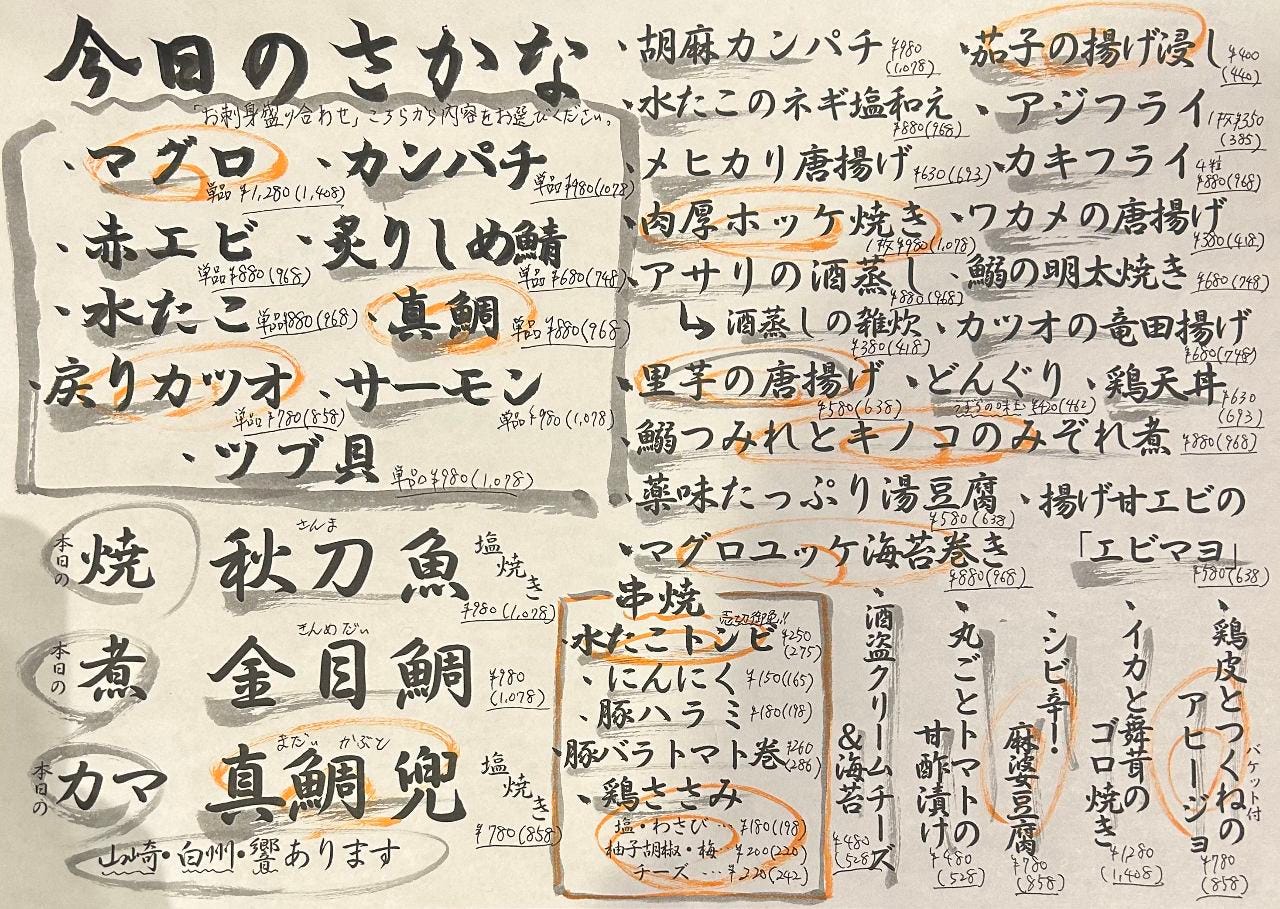 今日のさかな
「お刺身盛り合わせ」こちらから内容をお選びください。
・マグロ 単品 ¥1,280(1,408)
・カンパチ 単品 ¥980(1,078)
・赤エビ 単品 ¥880(968)
・炙りしめ鯖 単品 ¥680(748)
・水たこ 単品 ¥880(968)
・真鯛 単品 ¥880(968)
・戻りカツオ 単品 ¥780(858)
・サーモン 単品 ¥980(1,078)
・ツブ貝 単品 ¥980(1,078)
本日の 焼 秋刀魚 さんま 塩焼き ¥980(1,078)
本日の 煮 金目鯛 きんめだい ¥980(1,078)
本日の カマ 真鯛兜 まだい かぶと 塩焼き ¥780(858)
山崎・白州・響あります
・胡麻カンパチ ¥980(1,078)
・水たこのネギ塩和え ¥880(968)
・メヒカリ唐揚げ ¥630(693)
・肉厚ホッケ焼き 1枚 ¥980(1,078)
・アサリの酒蒸し ¥880(968)
↳酒蒸しの雑炊 ¥380(418)
・里芋の唐揚げ ¥580(638)
・どんぐり ¥420(462)
・鶏天丼 ¥630(693)
・鰯つみれとキノコのみぞれ煮 ¥880(968)
・薬味たっぷり湯豆腐 ¥580(638)
・マグロユッケ海苔巻き ¥880(968)
・茄子の揚げ浸し ¥400(440)
・アジフライ 1枚¥350(385)
・カキフライ 4粒 ¥880(968)
・ワカメの唐揚げ ¥380(418)
・鰯の明太焼き ¥680(748)
・カツオの竜田揚げ ¥680(748)
・揚げ甘エビの
「エビマヨ」 ¥580(638)
串焼
売切御免!!
・水たこトンビ ¥250(275)
・にんにく ¥150(165)
・豚ハラミ ¥180(198)
・豚バラトマト巻 ¥260(286)
・鶏ささみ
塩・わさび… ¥180(198)
柚子胡椒・梅… ¥200(220)
チーズ … ¥220(242)
・鶏皮とつくねの
アヒージョ バケット付 ¥780(858)
・イカと舞茸の
ゴロ焼き ¥1280(1,408)
・シビ辛!
麻婆豆腐 ¥780(858)
・丸ごとトマトの
甘酢漬け ¥480(528)
・酒盗クリームチーズ
&海苔 ¥480(528)